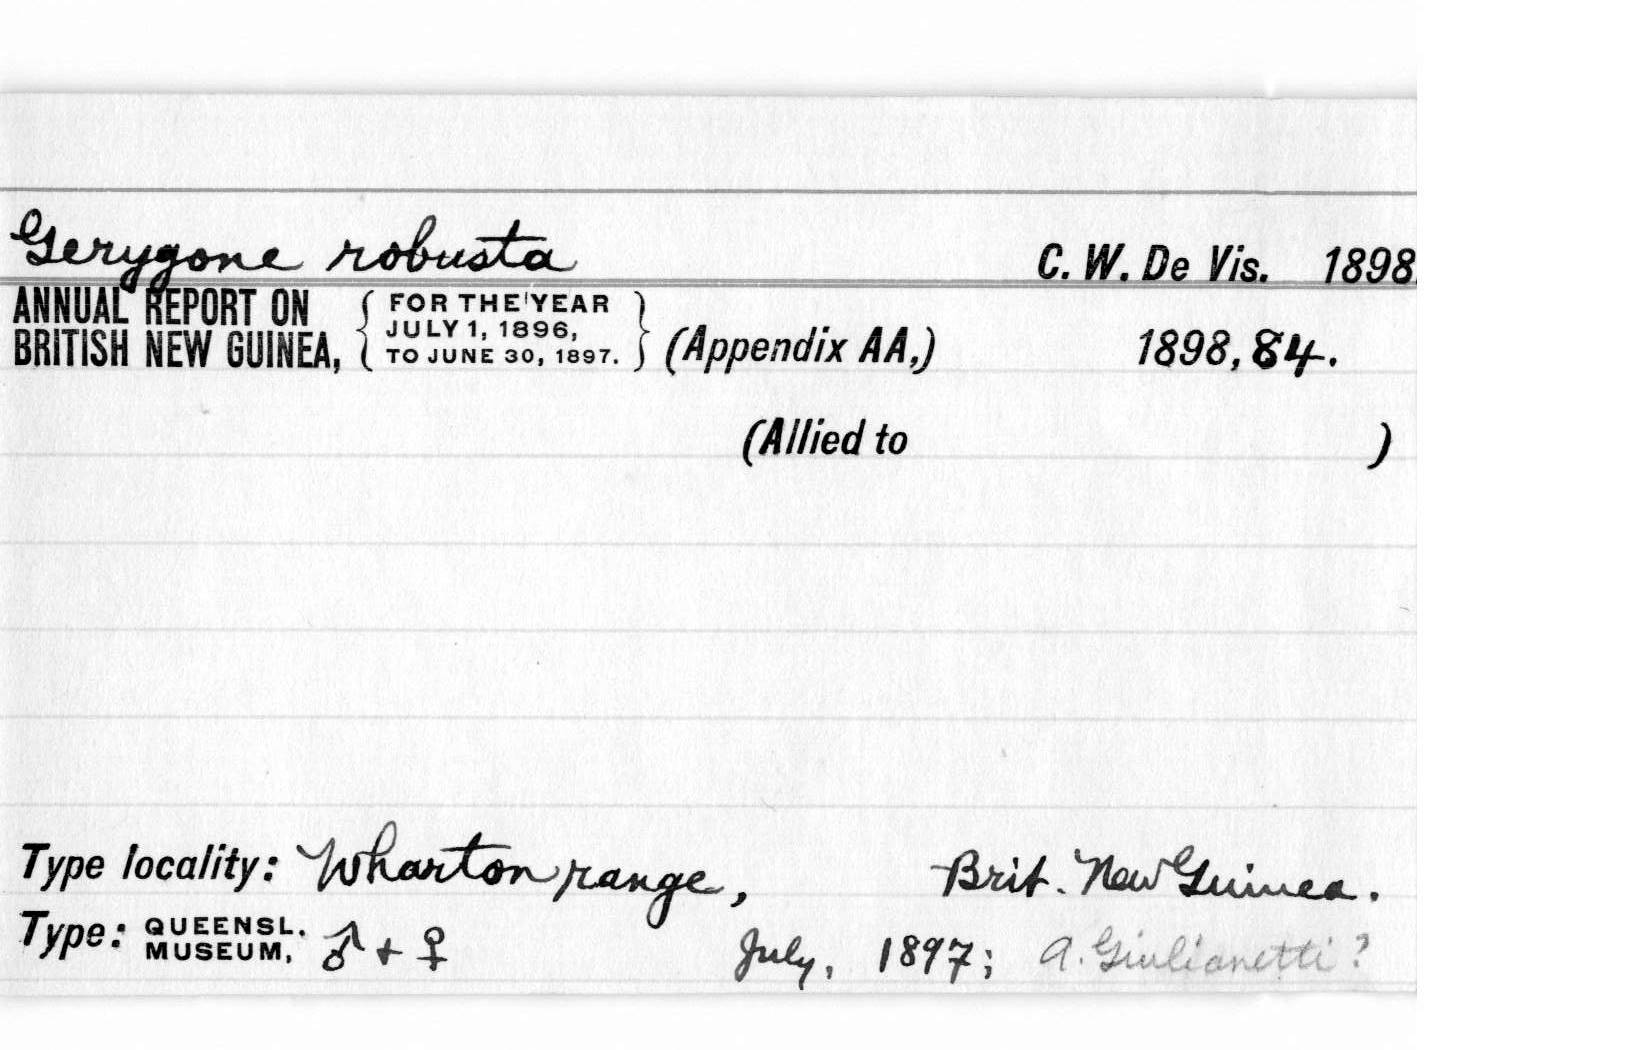 Gerygone robusta C. W. De Vis. 1898.
ANNUAL REPORT ON BRITISH NEW GUINEA, { FOR THE YEAR JULY 1, 1896, TO JUNE 30, 1897. } (Appendix AA,) 1898, 84.
(Allied to )
Type locality: Wharton range, Brit. New Guinea.
Type: QUEENSL. MUSEUM, ♂ + ♀ July, 1897; A. Giulianetti?